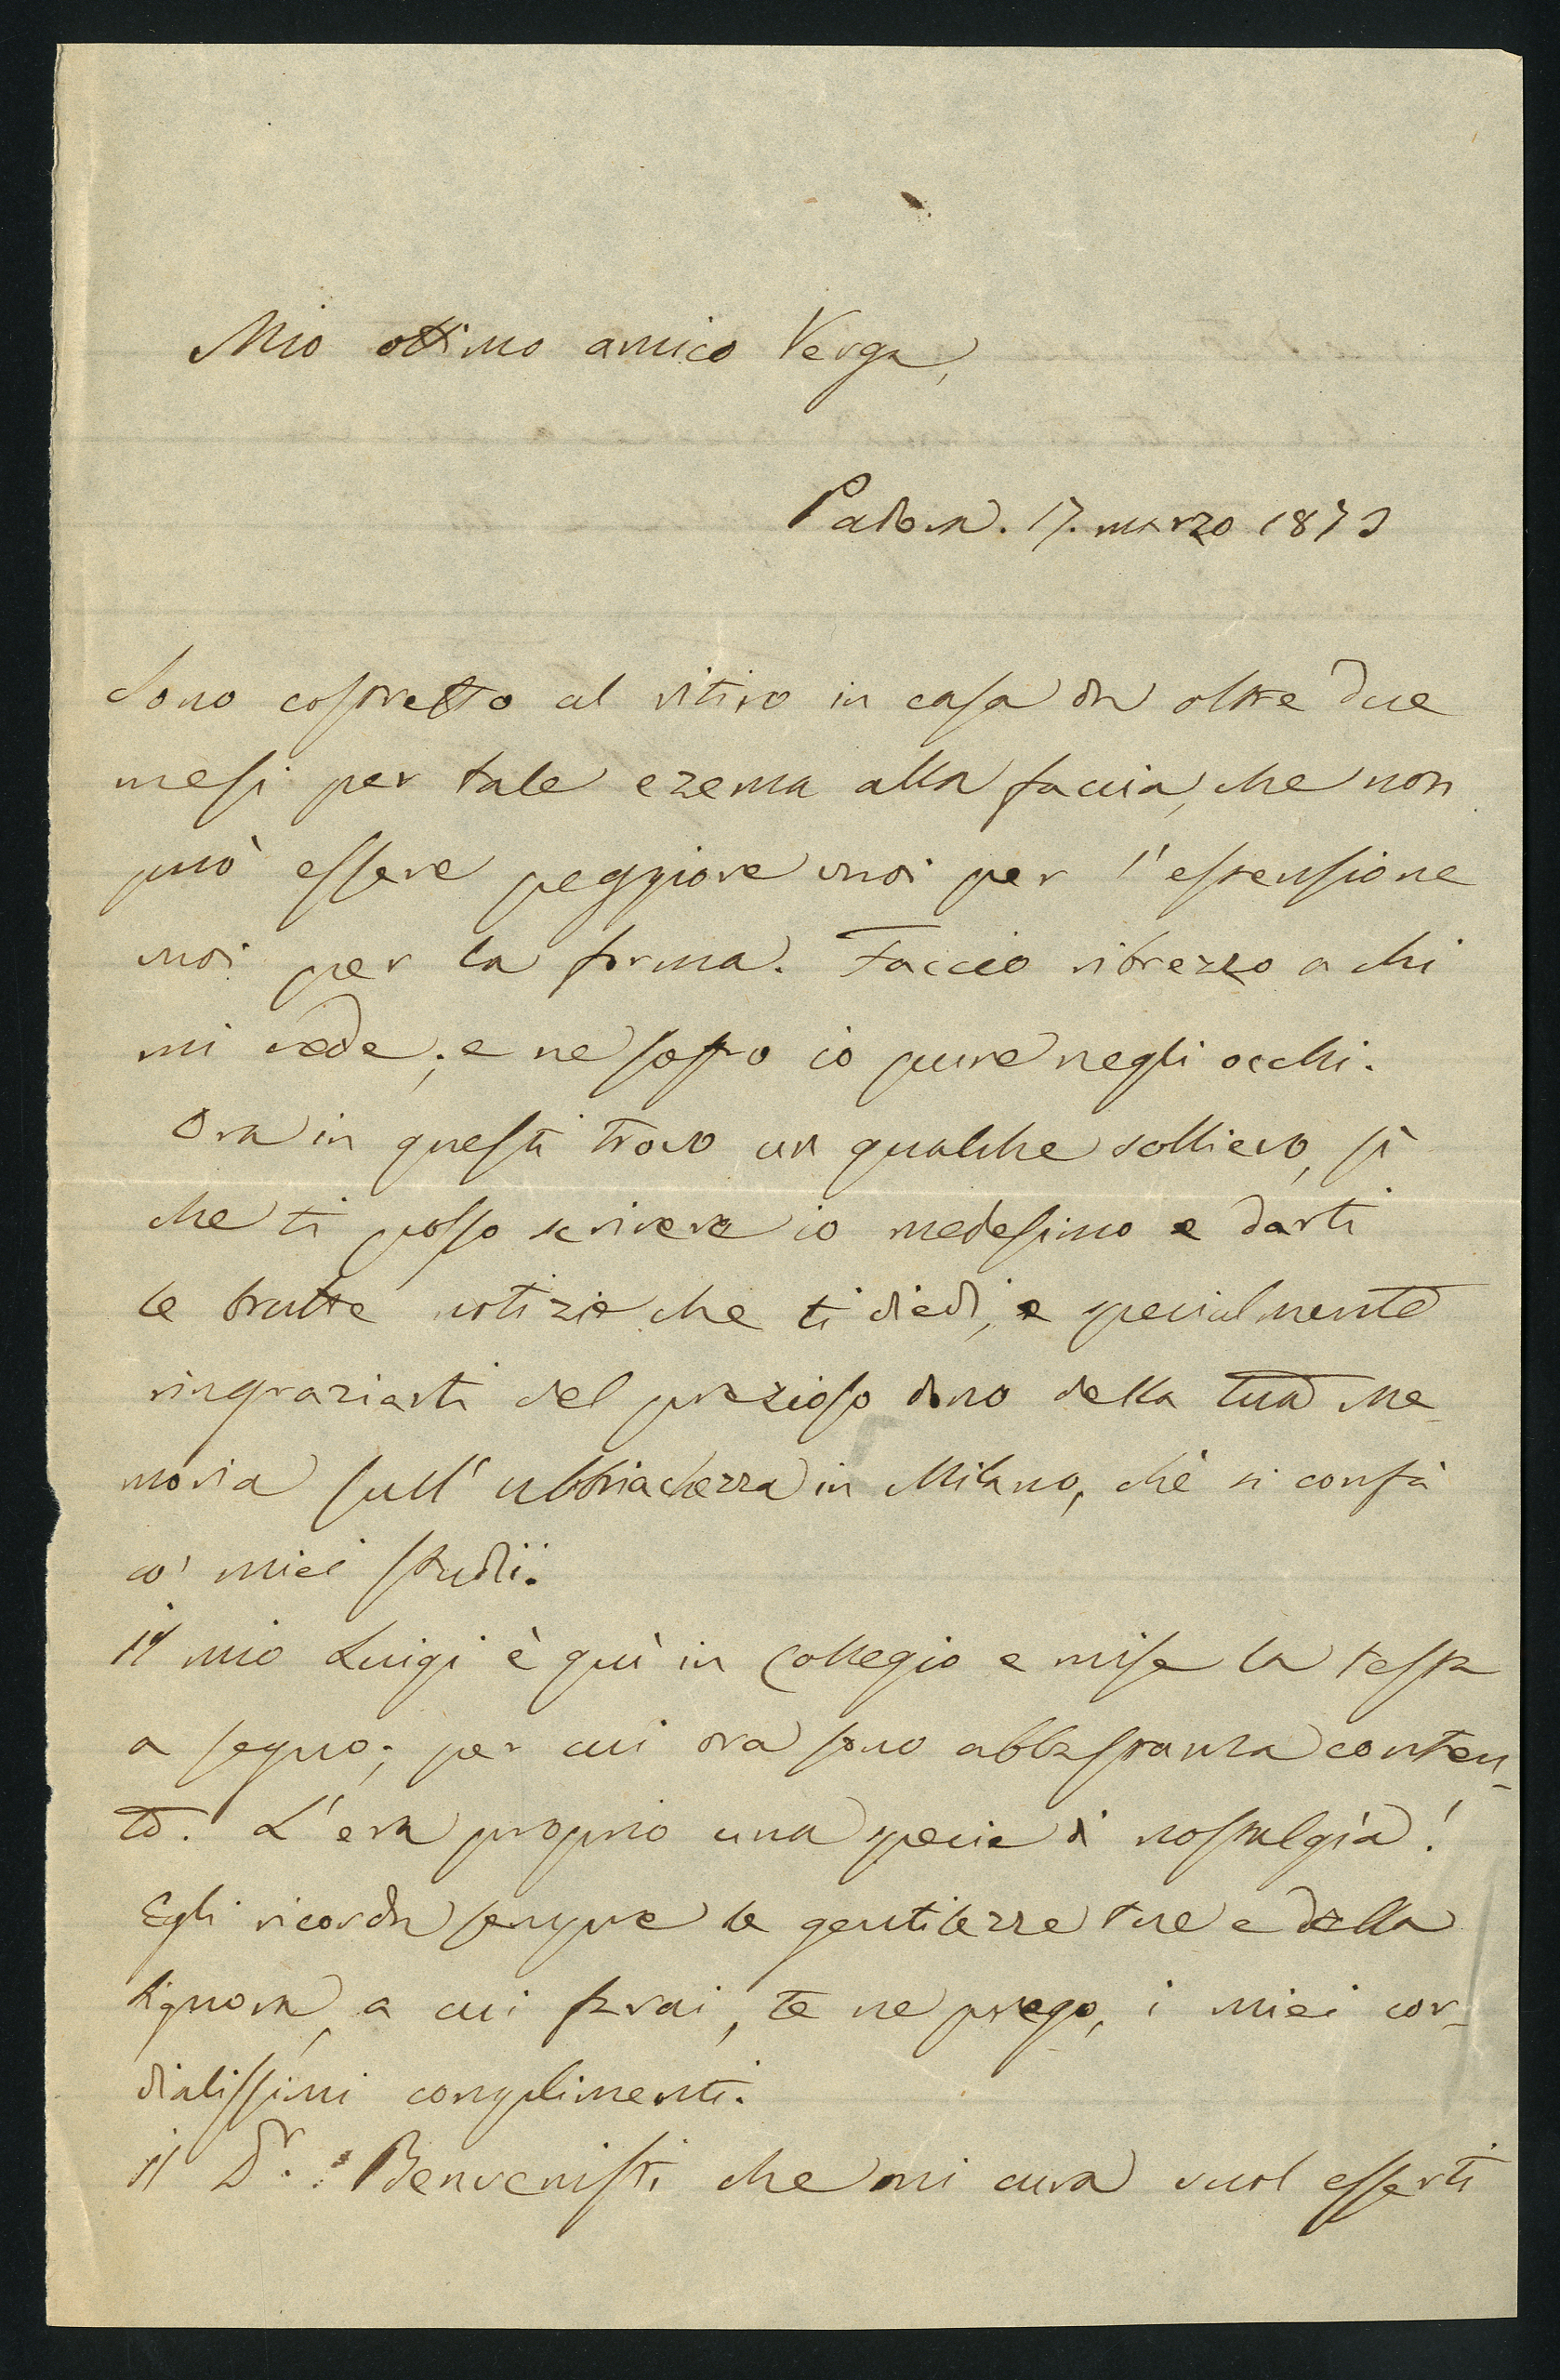 Mio ottimo amico Verga,
Padova. 17. marzo 1873
Sono costretto al ritiro in casa da oltre due
mesi per tale ezema alla faccia, che non
può essere peggiore vuoi per l'estensione
vuoi per la forma. Faccio ribrezzo a chi
mi vede; e ne soffro io pure negli occhi.
Ora in questi trovo un qualche sollievo, sì
che ti posso scrivere io medesimo e darti
le brutte notizie che ti diedi, e specialmente
ringraziarti del prezioso dono della tua Me-
moria sull'ubbriachezza in Milano, chè si confà
co' miei studii.
il mio Luigi è quì in Collegio e mise la testa
a segno; per cui ora sono abbastanza conten-
to. L'era proprio una specie di nostalgìa!
Egli ricorda sempre le gentilezze tue e della
Signora, a cui farai, te ne prego, i miei cor-
dialissimi complimenti.
il Dr. Benvenisti che mi cura vuol esserti